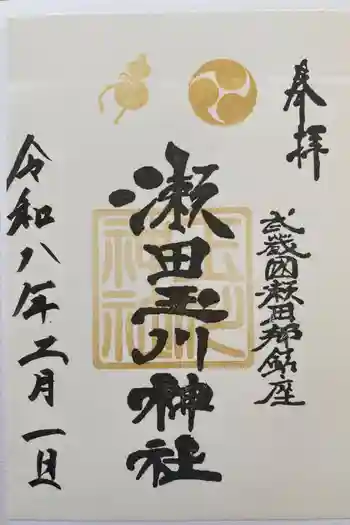 奉拝
武蔵國瀬田郷鎮座
瀬田玉川神社
令和八年二月一日